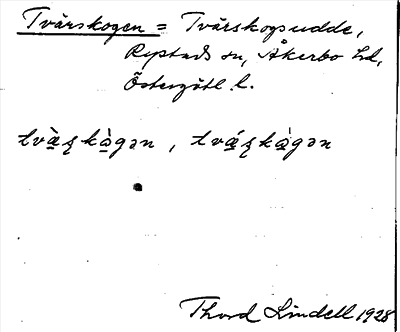 Tvärskogen = Tvärskogsudde,
Rystads sn, Åkerbo hd,
Östergötl. l.
tvä̀ʂkå̀gən, tvä́ʂkå̀gən
Thord Lindell 1928